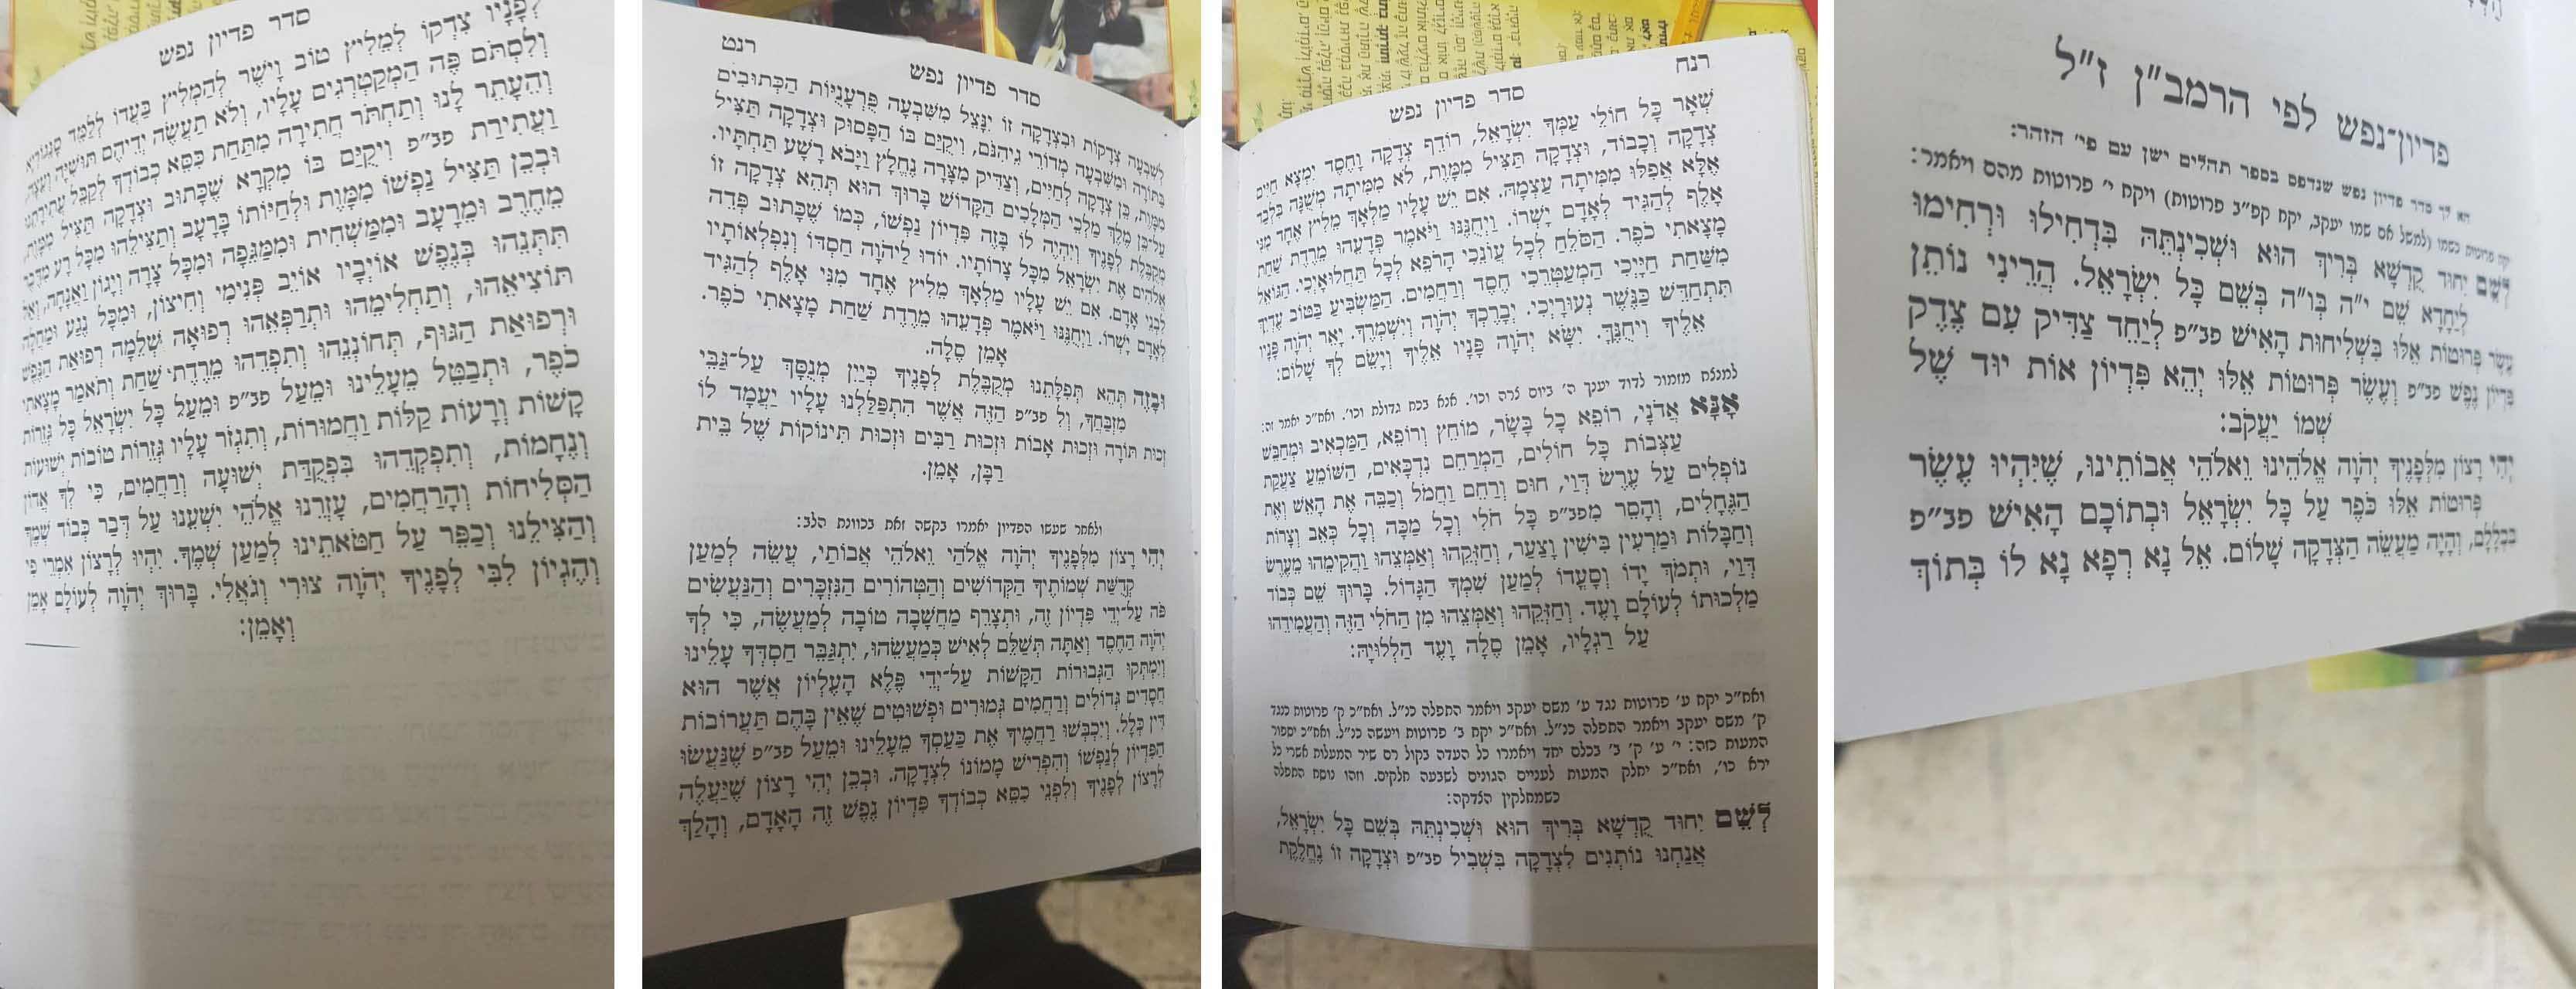 פדיון־נפש לפי הרמב"ן ז"ל
הא לך סדר פדיון נפש שנדפס בספר תהלים ישן עם פי׳ הזהר:
יקח פרוטות כשמו (למשל אם שמו יעקב, יקח קפ״ב פרוטות) ויקח י׳ פרוטות מהם ויאמר:
לְשֵׁם יִחוּד קֻדְשָׁא בְּרִיךְ הוּא וּשְׁכִינְתֵּהּ בִּדְחִילוּ וּרְחִימוּ
לְיַחֲדָא שֵׁם י״ה בְּו״ה בְּשֵׁם כָּל יִשְׂרָאֵל. הֲרֵינִי נוֹתֵן
עֶשֶׂר פְּרוּטוֹת אֵלּוּ בִּשְׁלִיחוּת הָאִישׁ פב״פ לְיַחֵד צַדִּיק עִם צֶדֶק
פִּדְיוֹן נֶפֶשׁ פב״פ וְעֶשֶׂר פְּרוּטוֹת אֵלּוּ יְהֵא פִּדְיוֹן אוֹת יוּד שֶׁל
שְׁמוֹ יַעֲקֹב:
יְהִי רָצוֹן מִלְּפָנֶיךָ יְהֹוָה אֱלֹהֵינוּ וֵאלֹהֵי אֲבוֹתֵינוּ, שֶׁיִּהְיוּ עֶשֶׂר
פְּרוּטוֹת אֵלּוּ כֹּפֶר עַל כָּל יִשְׂרָאֵל וּבְתוֹכָם הָאִישׁ פב״פ
בִּכְלָלָם, וְהָיָה מַעֲשֵׂה הַצְּדָקָה שָׁלוֹם. אֵל נָא רְפָא נָא לוֹ בְּתוֹךְ
רנח
סדר פדיון נפש
שְׁאָר כָּל חוֹלֵי עַמְּךָ יִשְׂרָאֵל, רוֹדֵף צְדָקָה וָחֶסֶד יִמְצָא חַיִּים
צְדָקָה וְכָבוֹד, וּצְדָקָה תַּצִּיל מִמָּוֶת, לֹא מִמִּיתָה מְשֻׁנָּה בִּלְבַד
אֶלָּא אֲפִלּוּ מִמִּיתָה עַצְמָהּ. אִם יֵשׁ עָלָיו מַלְאָךְ מֵלִיץ אֶחָד מִנִּי
אָלֶף לְהַגִּיד לְאָדָם יָשְׁרוֹ. וַיְחֻנֶּנּוּ וַיֹּאמֶר פְּדָעֵהוּ מֵרֶדֶת שַׁחַת
מָצָאתִי כֹפֶר. הַסֹּלֵחַ לְכָל עֲוֹנֵכִי הָרֹפֵא לְכָל תַּחֲלוּאָיְכִי. הַגּוֹאֵל
מִשַּׁחַת חַיָּיְכִי הַמְעַטְּרֵכִי חֶסֶד וְרַחֲמִים. הַמַּשְׂבִּיעַ בַּטּוֹב עֶדְיֵךְ
תִּתְחַדֵּשׁ כַּנֶּשֶׁר נְעוּרָיְכִי. יְבָרֶכְךָ יְהֹוָה וְיִשְׁמְרֶךָ. יָאֵר יְהֹוָה פָּנָיו
אֵלֶיךָ וִיחֻנֶּךָּ. יִשָּׂא יְהֹוָה פָּנָיו אֵלֶיךָ וְיָשֵׂם לְךָ שָׁלוֹם:
למנצח מזמור לדוד יענך ה׳ ביום צרה וכו׳. אנא בכח גדולת וכו׳. ואח״כ יאמר זה:
אָנָּא אֲדֹנָי, רוֹפֵא כָל בָּשָׂר, מוֹחֵץ וְרוֹפֵא, הַמַּכְאִיב וּמְחַבֵּשׁ
עַצְבוֹת כָּל חוֹלִים, הַמְרַחֵם נִדְכָּאִים, הַשּׁוֹמֵעַ צַעֲקַת
נוֹפְלִים עַל עֶרֶשׂ דְּוָי, חוּס וְרַחֵם וַחֲמֹל וְכַבֵּה אֶת הָאֵשׁ וְאֶת
הַגֶּחָלִים, וְהָסֵר מִפב״פ כָּל חֹלִי וְכָל מַכָּה וְכָל כְּאֵב וְצָרוֹת
וְחַבָּלוֹת וּמַרְעִין בִּישִׁין וְצַעַר, וְחַזְּקֵהוּ וְאַמְּצֵהוּ וַהֲקִימֵהוּ מֵעֶרֶשׂ
דְּוָי, וּתְמֹךְ יָדוֹ וְסָעֳדוֹ לְמַעַן שִׁמְךָ הַגָּדוֹל. בָּרוּךְ שֵׁם כְּבוֹד
מַלְכוּתוֹ לְעוֹלָם וָעֶד. וְחַזְּקֵהוּ וְאַמְּצֵהוּ מִן הַחֹלִי הַזֶּה וְהַעֲמִידֵהוּ
עַל רַגְלָיו, אָמֵן סֶלָה וָעֶד הַלְלוּיָהּ:
ואח״כ יקח ע׳ פרוטות נגד ע׳ משם יעקב ויאמר התפלה כנ״ל. ואח״כ ק׳ פרוטות כנגד
ק׳ משם יעקב ויאמר התפלה כנ״ל. ואח״כ יקח ב׳ פרוטות ויעשה כנ״ל. ואח״כ יספור
המעות כזה: י׳ ע׳ ק׳ ב׳ בכלם יחד ויאמרו כל העדה בקול רם שיר המעלות אשרי כל
ירא כו׳, ואח״כ יחלק המעות לעניים הגונים לשבעה חלקים. וזהו נוסח התפלה
כשמחלקין הצדקה:
לְשֵׁם יִחוּד קֻדְשָׁא בְּרִיךְ הוּא וּשְׁכִינְתֵּהּ בְּשֵׁם כָּל יִשְׂרָאֵל,
אֲנַחְנוּ נוֹתְנִים לִצְדָקָה בִּשְׁבִיל פב״פ וּצְדָקָה זוֹ נֶחֱלֶקֶת
רנט
סדר פדיון נפש
לְשִׁבְעָה צְדָקוֹת וּבִצְדָקָה זוֹ יִנָּצֵל מִשִּׁבְעָה פֻּרְעָנֻיּוֹת הַכְּתוּבִים
בַּתּוֹרָה וּמִשִּׁבְעָה מְדוֹרֵי גֵיהִנֹּם, וִיקֻיַּם בּוֹ הַפָּסוּק וּצְדָקָה תַּצִּיל
מִמָּוֶת, כֵּן צְדָקָה לְחַיִּים, וְצַדִּיק מִצָּרָה נֶחֱלָץ וַיָּבֹא רָשָׁע תַּחְתָּיו.
עַל־כֵּן מֶלֶךְ מַלְכֵי הַמְּלָכִים הַקָּדוֹשׁ בָּרוּךְ הוּא תְּהֵא צְדָקָה זוֹ
מְקֻבֶּלֶת לְפָנֶיךָ וְיִהְיֶה לוֹ בָּזֶה פִּדְיוֹן נַפְשׁוֹ, כְּמוֹ שֶׁכָּתוּב פְּדֵה
אֱלֹהִים אֶת יִשְׂרָאֵל מִכֹּל צָרוֹתָיו. יוֹדוּ לַיהֹוָה חַסְדּוֹ וְנִפְלְאוֹתָיו
לִבְנֵי אָדָם. אִם יֵשׁ עָלָיו מַלְאָךְ מֵלִיץ אֶחָד מִנִּי אָלֶף לְהַגִּיד
לְאָדָם יָשְׁרוֹ. וַיְחֻנֶּנּוּ וַיֹּאמֶר פְּדָעֵהוּ מֵרֶדֶת שַׁחַת מָצָאתִי כֹפֶר.
אָמֵן סֶלָה.
וּבָזֶה תְּהֵא תְפִלָּתֵנוּ מְקֻבֶּלֶת לְפָנֶיךָ כְּיַיִן מְנֻסָּךְ עַל־גַּבֵּי
מִזְבַּחֲךָ, וְלִ פב״פ הַזֶּה אֲשֶׁר הִתְפַּלַּלְנוּ עָלָיו יַעֲמָד לוֹ
זְכוּת תּוֹרָה וּזְכוּת אָבוֹת וּזְכוּת רַבִּים וּזְכוּת תִּינוֹקוֹת שֶׁל בֵּית
רַבָּן, אָמֵן.
ולאחר שעשו הפדיון יאמרו בקשה זאת בכוונת הלב:
יְהִי רָצוֹן מִלְּפָנֶיךָ יְהֹוָה אֱלֹהַי וֵאלֹהֵי אֲבוֹתַי, עֲשֵׂה לְמַעַן
קְדֻשַּׁת שְׁמוֹתֶיךָ הַקְּדוֹשִׁים וְהַטְּהוֹרִים הַנִּזְכָּרִים וְהַנַּעֲשִׂים
פֹּה עַל־יְדֵי פִּדְיוֹן זֶה, וּתְצָרֵף מַחֲשָׁבָה טוֹבָה לְמַעֲשֶׂה, כִּי לְךָ
יְהֹוָה הַחֶסֶד וְאַתָּה תְּשַׁלֵּם לְאִישׁ כְּמַעֲשֵׂהוּ, יִתְגַּבֵּר חַסְדְּךָ עָלֵינוּ
וְיִמְתְּקוּ הַגְּבוּרוֹת הַקָּשׁוֹת עַל־יְדֵי פֶּלֶא הָעֶלְיוֹן אֲשֶׁר הוּא
חֲסָדִים גְּדוֹלִים וְרַחֲמִים גְּמוּרִים וּפְשׁוּטִים שֶׁאֵין בָּהֶם תַּעֲרוֹבוֹת
דִּין כְּלָל. וְיִכְבְּשׁוּ רַחֲמֶיךָ אֶת כַּעַסְךָ מֵעָלֵינוּ וּמֵעַל פב״פ שֶׁנַּעֲשׂוּ
הַפִּדְיוֹן לְנַפְשׁוֹ וְהִפְרִישׁ מָמוֹנוֹ לִצְדָקָה. וּבְכֵן יְהִי רָצוֹן שֶׁיַּעֲלֶה
לְרָצוֹן לְפָנֶיךָ וְלִפְנֵי כִסֵּא כְבוֹדְךָ פִּדְיוֹן נֶפֶשׁ זֶה הָאָדָם, וְהָלַךְ
סדר פדיון נפש
לְפָנָיו צִדְקוֹ לְמֵלִיץ טוֹב וְיֹשֶׁר לְהַמְלִיץ בַּעֲדוֹ לְלַמֵּד סָנֵגוֹרְיָא
וְלִסְתֹּם פֶּה הַמְקַטְרְגִים עָלָיו, וְלֹא תַעֲשֶׂה יְדֵיהֶם תּוּשִׁיָּה וְעֵצָה,
וְהֵעָתֵר לָנוּ וְתַחְתֹּר חֲתִירָה מִתַּחַת כִּסֵּא כְבוֹדְךָ לְקַבֵּל עֲתִירָתֵנוּ
וַעֲתִירַת פב״פ וִיקֻיַּם בּוֹ מִקְרָא שֶׁכָּתוּב וּצְדָקָה תַּצִּיל מִמָּוֶת,
וּבְכֵן תַּצִּיל נַפְשׁוֹ מִמָּוֶת וּלְחַיּוֹתוֹ בָּרָעָב וְתַצִּילֵהוּ מִכָּל רָע מִדֶּבֶר
מֵחֶרֶב וּמֵרָעָב וּמִמַּשְׁחִית וּמִמַּגֵּפָה וּמִכָּל צָרָה וְיָגוֹן וַאֲנָחָה, וְאַל
תִּתְּנֵהוּ בְּנֶפֶשׁ אוֹיְבָיו אוֹיֵב פְּנִימִי וְחִיצוֹן, וּמִכָּל נֶגַע וּמַחֲלָה
תּוֹצִיאֵהוּ, וְתַחֲלִימֵהוּ וּתְרַפְּאֵהוּ רְפוּאָה שְׁלֵמָה רְפוּאַת הַנֶּפֶשׁ
וּרְפוּאַת הַגּוּף, תְּחוֹנְנֵהוּ וְתִפְדֵהוּ מֵרֶדֶת־שַׁחַת וְתֹאמַר מָצָאתִי
כֹפֶר, וּתְבַטֵּל מֵעָלֵינוּ וּמֵעַל פב״פ וּמֵעַל כָּל יִשְׂרָאֵל כָּל גְּזֵרוֹת
קָשׁוֹת וְרָעוֹת קַלּוֹת וַחֲמוּרוֹת, וְתִגְזֹר עָלָיו גְּזֵרוֹת טוֹבוֹת יְשׁוּעוֹת
וְנֶחָמוֹת, וְתִפְקְדֵהוּ בִּפְקֻדַּת יְשׁוּעָה וְרַחֲמִים, כִּי לְךָ אֲדוֹן
הַסְּלִיחוֹת וְהָרַחֲמִים, עָזְרֵנוּ אֱלֹהֵי יִשְׁעֵנוּ עַל דְּבַר כְּבוֹד שְׁמֶךָ
וְהַצִּילֵנוּ וְכַפֵּר עַל חַטֹּאתֵינוּ לְמַעַן שְׁמֶךָ. יִהְיוּ לְרָצוֹן אִמְרֵי פִי
וְהֶגְיוֹן לִבִּי לְפָנֶיךָ יְהֹוָה צוּרִי וְגֹאֲלִי. בָּרוּךְ יְהֹוָה לְעוֹלָם אָמֵן
וְאָמֵן: